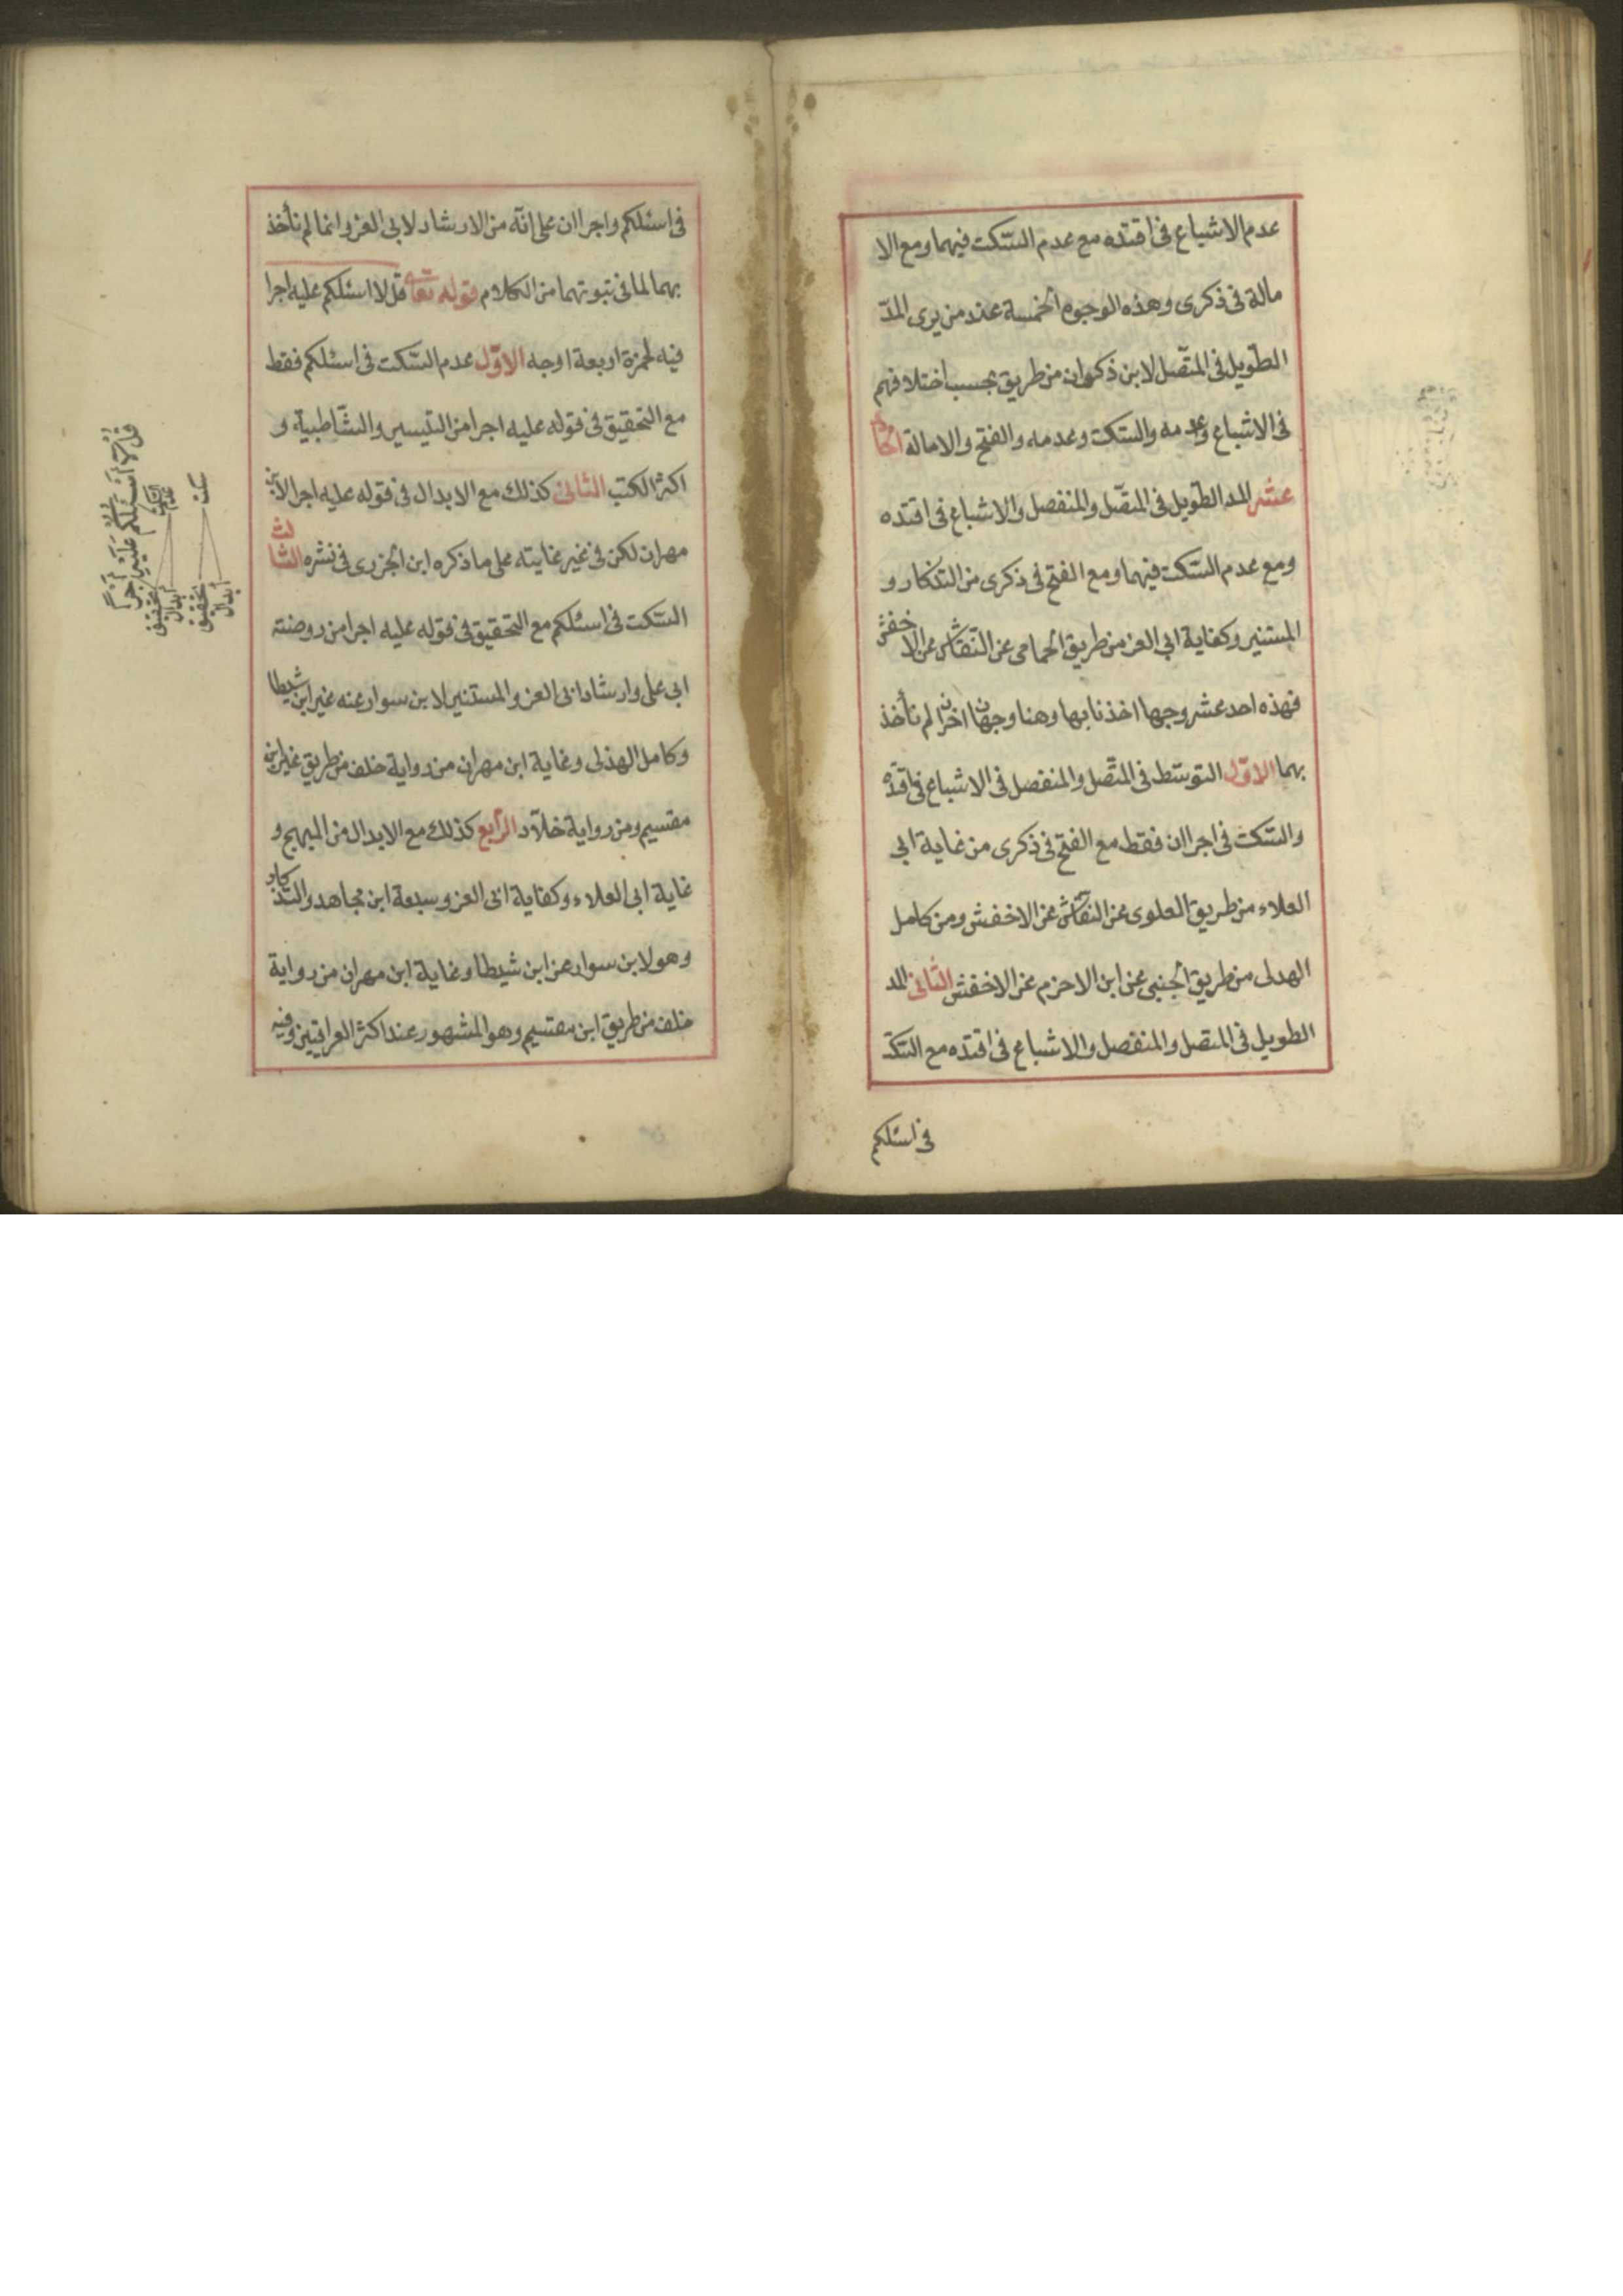 عدم الاشباع فى اقتده مع عدم السّكت فيهما ومع الا
مالة فى ذكرى وهذه الوجوه الخمسة عند من يرى المدّ
الطّويل فى المتّصل لابن ذكوان من طريق بحسب اختلافهم
فى الاشباع وعدمه والسّكت وعدمه والفتح والامالة الحادى
عشر المد الطّويل فى المتّصل والمنفصل والاشباع فى اقتده
ومع عدم السّكت فيهما ومع الفتح فى ذكرى من التذكار و
المستنير وكفاية ابى العز من طريق الحمامى عن النّقاش عن الاخفش
فهذه احد عشر وجها اخذنا بها وهنا وجهان اخران لم نأخذ
بهما الاوّل التوسّط فى المتّصل والمنفصل فى الاشباع فى اقتده
والسّكت فى اجرا ان فقط مع الفتح فى ذكرى من غاية ابى
العلاء من طريق العلوى عن النقّاش عن الاخفش ومن كامل
الهدلى من طريق الجبنى عن ابن الاخرم عن الاخفش الثانى المد
الطويل فى المتصل والمنفصل والاشباع فى اقتده مع السّكت
فى اسئلكم
فى اسئلكم واجرا ان على انّه من الارشاد لابى العز وانما لم نأخذ
بهما لما فى ثبوتهما من الكلام قوله تعالى قل لا اسئلكم عليه اجرا
فيه لحمزة اربعة اوجه الاوّل عدم السّكت فى اسئلكم فقط
مع التحقيق فى قوله عليه اجرا من التيسير والشّاطبية و
اكثر الكتب الثانى كذلك مع الابدال فى قوله عليه اجرا لابن
مهران لكن فى غير غايته على ما ذكره ابن الجزرى فى نشره الثالث
السّكت فى اسئلكم مع التحقيق فى قوله عليه اجرا من روضته
ابى على وارشاد ابى العز والمستنير لابن سوار عنه غير ابن شيطا
وكامل الهذلى وغاية ابن مهران من رواية خلف من طريق غير ابن
مقسيم ومن رواية خلّاد الرّابع كذلك مع الابدال من المبهج و
غاية ابى العلاء وكفاية ابى العز وسبعة ابن مجاهد والتذكار
وهو لابن سوار عن ابن شيطا وغاية ابن مهران من رواية
خلف من طريق ابن مقسيم وهو المشهور عند اكثر العراقيين وفيه
قل لا أسئلكم عليه أجراً
عدم السكت
سكت
تحقيق
ابدال
تحقيق
ابدال